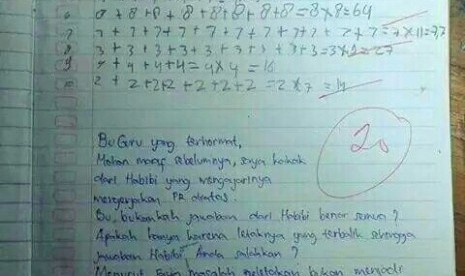 6 8 + 8 + 8 + 8 + 8 + 8 + 8 + 8 = 8 x 8 = 64
7 + 7 + 7 + 7 + 7 + 7 + 7 + 7 + 7 + 7 = 7 x 11 = 77
8 3 + 3 + 3 + 3 + 3 + 3 + 3 + 3 + 3 = 3 x 9 = 27
9 4 + 4 + 4 + 4 = 4 x 4 = 16
10 2 + 2 + 2 + 2 + 2 + 2 + 2 = 2 x 7 = 14
20
Bu Guru yang terhormat,
Mohon maaf sebelumnya, saya kakak
dari Habibi yang mengajarinya
mengerjakan PR diatas.
Bu, bukankah jawaban dari Habibi benar semua?
Apakah hanya karena letaknya yang terbalik sehingga
jawaban Habibi Anda salahkan?
Menurut saya masalah peletakan bukan menjadi